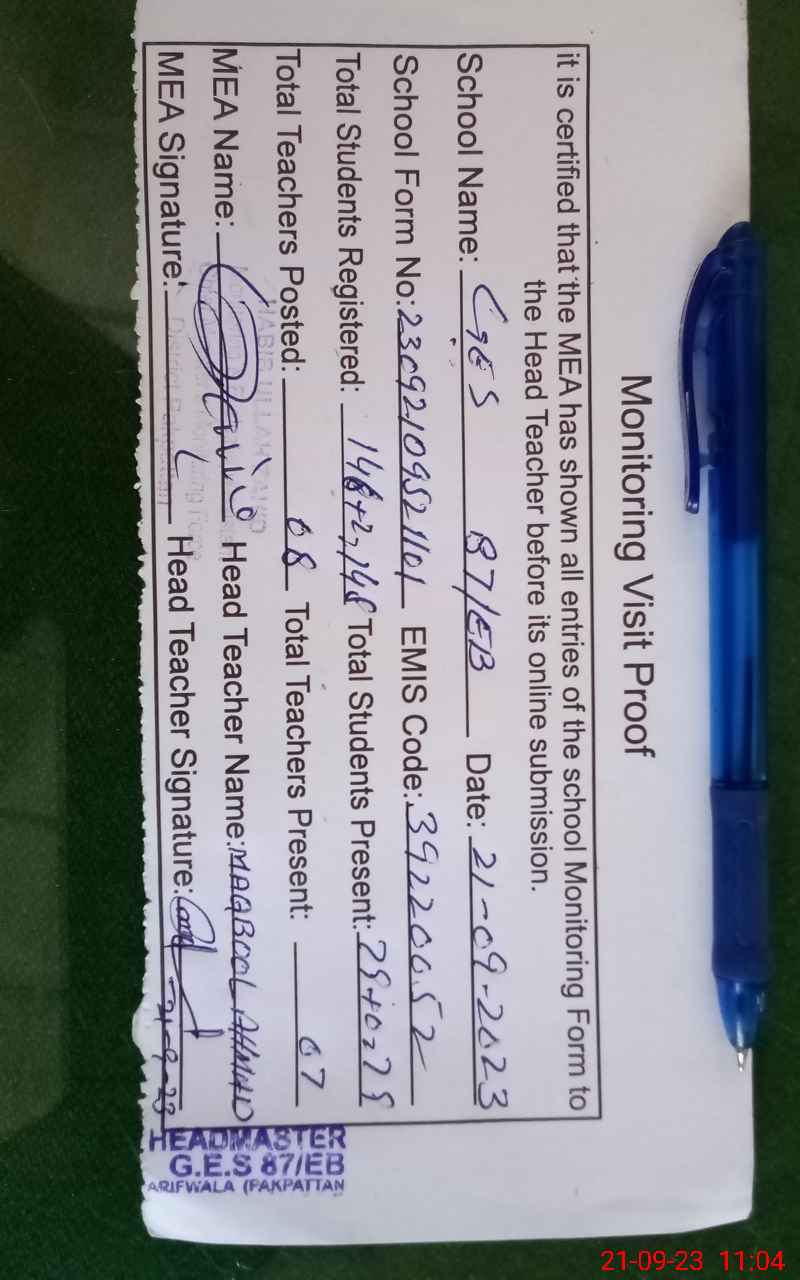 Monitoring Visit Proof
it is certified that the MEA has shown all entries of the school Monitoring Form to
the Head Teacher before its online submission.
School Name: GES 87/EB Date: 21-09-2023
School Form No: 23092109521101 EMIS Code: 39220052
Total Students Registered: Total Students Present:
Total Teachers Posted: 08 Total Teachers Present: 07
MEA Name: Head Teacher Name: MAQBOOL AHMAD
MEA Signature: Head Teacher Signature:
21-9-23
HEADMASTER
G.E.S 87/EB
ARIFWALA (PAKPATTAN
21-09-23 11:04